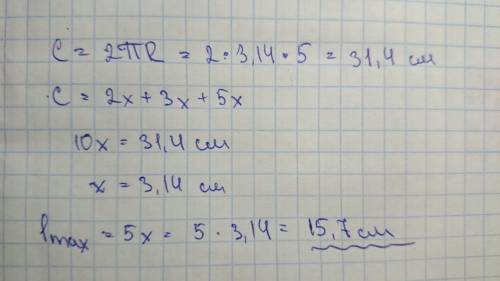 C = 2πR = 2·3,14·5 = 31,4 см
C = 2x + 3x + 5x
10x = 31,4 см
x = 3,14 см
lmax = 5x = 5·3,14 = 15,7 см